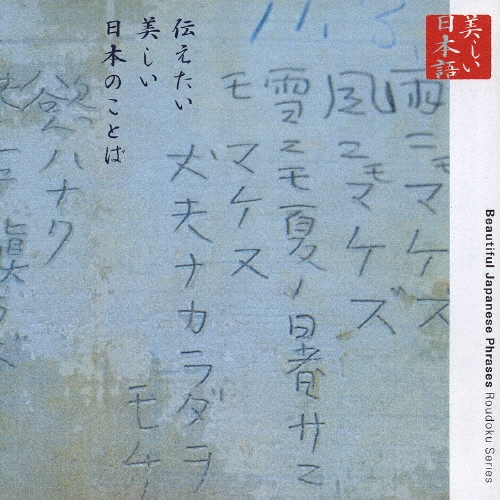 美しい
日本語
Beautiful Japanese Phrases Roudoku Series
伝えたい
美しい
日本のことば
11.3.
雨ニモマケズ
風ニモマケズ
雪ニモ夏ノ暑サニ
モ マケヌ
丈夫ナカラダヲ
モチ
慾ハナク